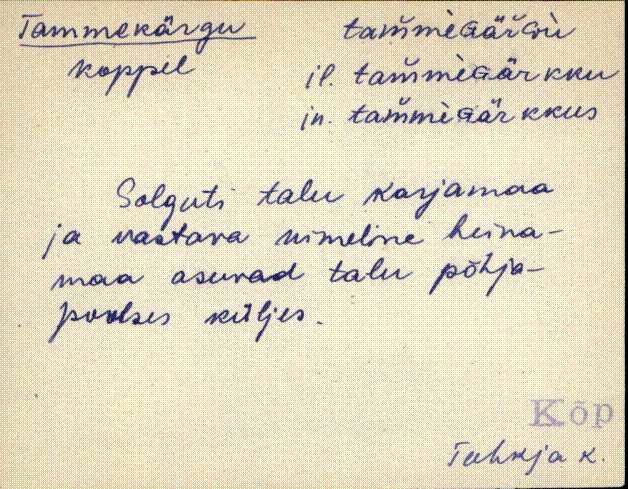 Tammekärgu tam̆mèɢär̆ɢù
koppel il. tam̆mèɢärkku
in. tam̆mèɢärkkus
Solguti talu karjamaa
ja vastava nimeline heina-
maa asuvad talu põhja-
poolses küljes.
Kõp
Tuhkja k.